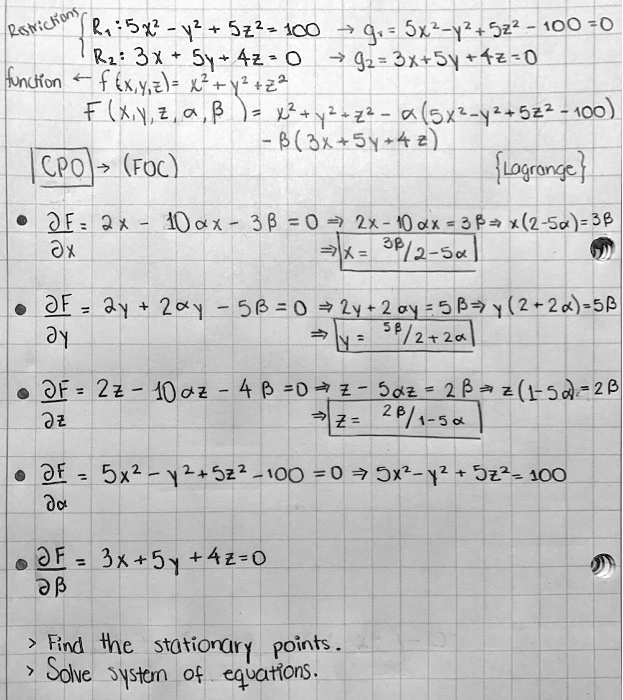 Restrictions { R₁: 5x² - y² + 5z² = 100 → g₁ = 5x² - y² + 5z² - 100 = 0
R₂: 3x + 5y + 4z = 0 → g₂ = 3x + 5y + 4z = 0
function ← f(x,y,z) = x² + y² + z²
F(x,y,z,α,β) = x² + y² + z² - α(5x² - y² + 5z² - 100)
- β(3x + 5y + 4z)
CPO → (FOC) {Lagrange}
• ∂F/∂x = 2x - 10αx - 3β = 0 ⇒ 2x - 10αx = 3β ⇒ x(2-5α) = 3β
⇒ x = 3β/2-5α
• ∂F/∂y = 2y + 2αy - 5β = 0 ⇒ 2y + 2αy = 5β ⇒ y(2+2α) = 5β
⇒ y = 5β/2+2α
• ∂F/∂z = 2z - 10αz - 4β = 0 ⇒ z - 5αz = 2β ⇒ z(1-5α) = 2β
⇒ z = 2β/1-5α
• ∂F/∂α = 5x² - y² + 5z² - 100 = 0 ⇒ 5x² - y² + 5z² = 100
• ∂F/∂β = 3x + 5y + 4z = 0
> Find the stationary points.
> Solve system of equations.